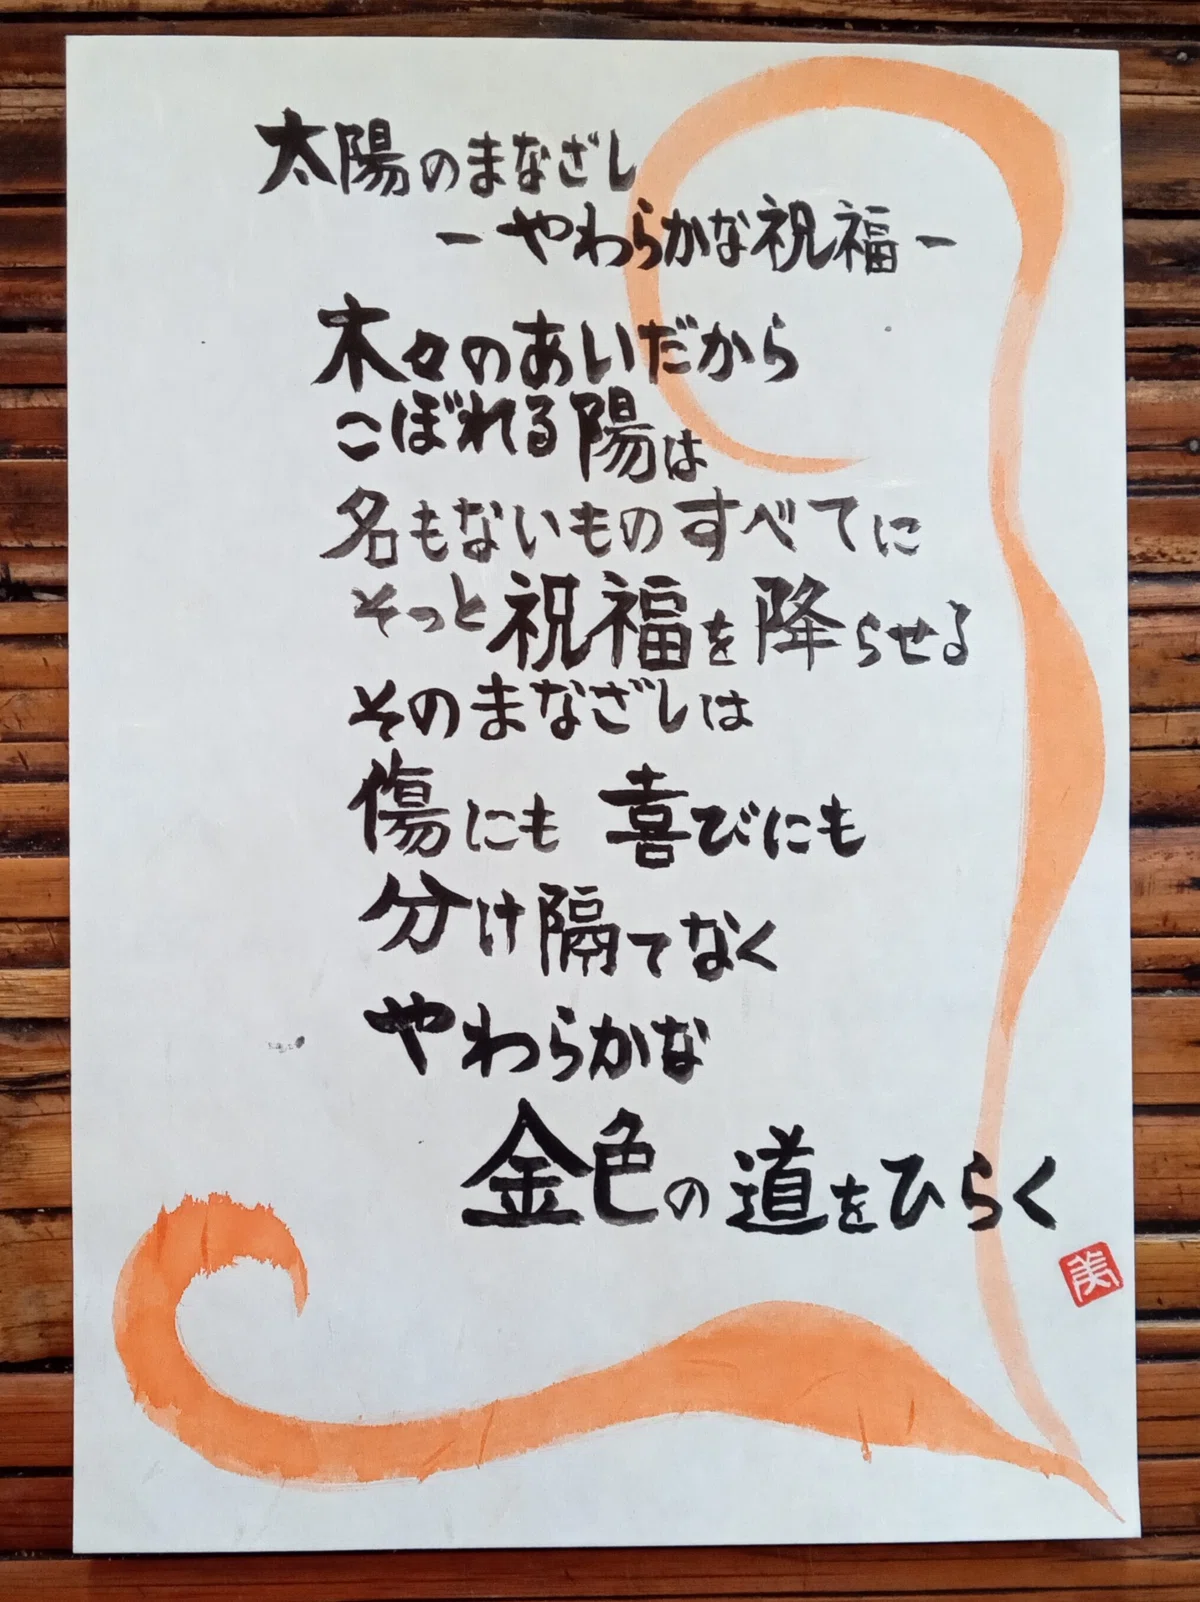 太陽のまなざし
－やわらかな祝福－
木々のあいだから
こぼれる陽は
名もないものすべてに
そっと祝福を降らせる
そのまなざしは
傷にも 喜びにも
分け隔てなく
やわらかな
金色の道をひらく
美